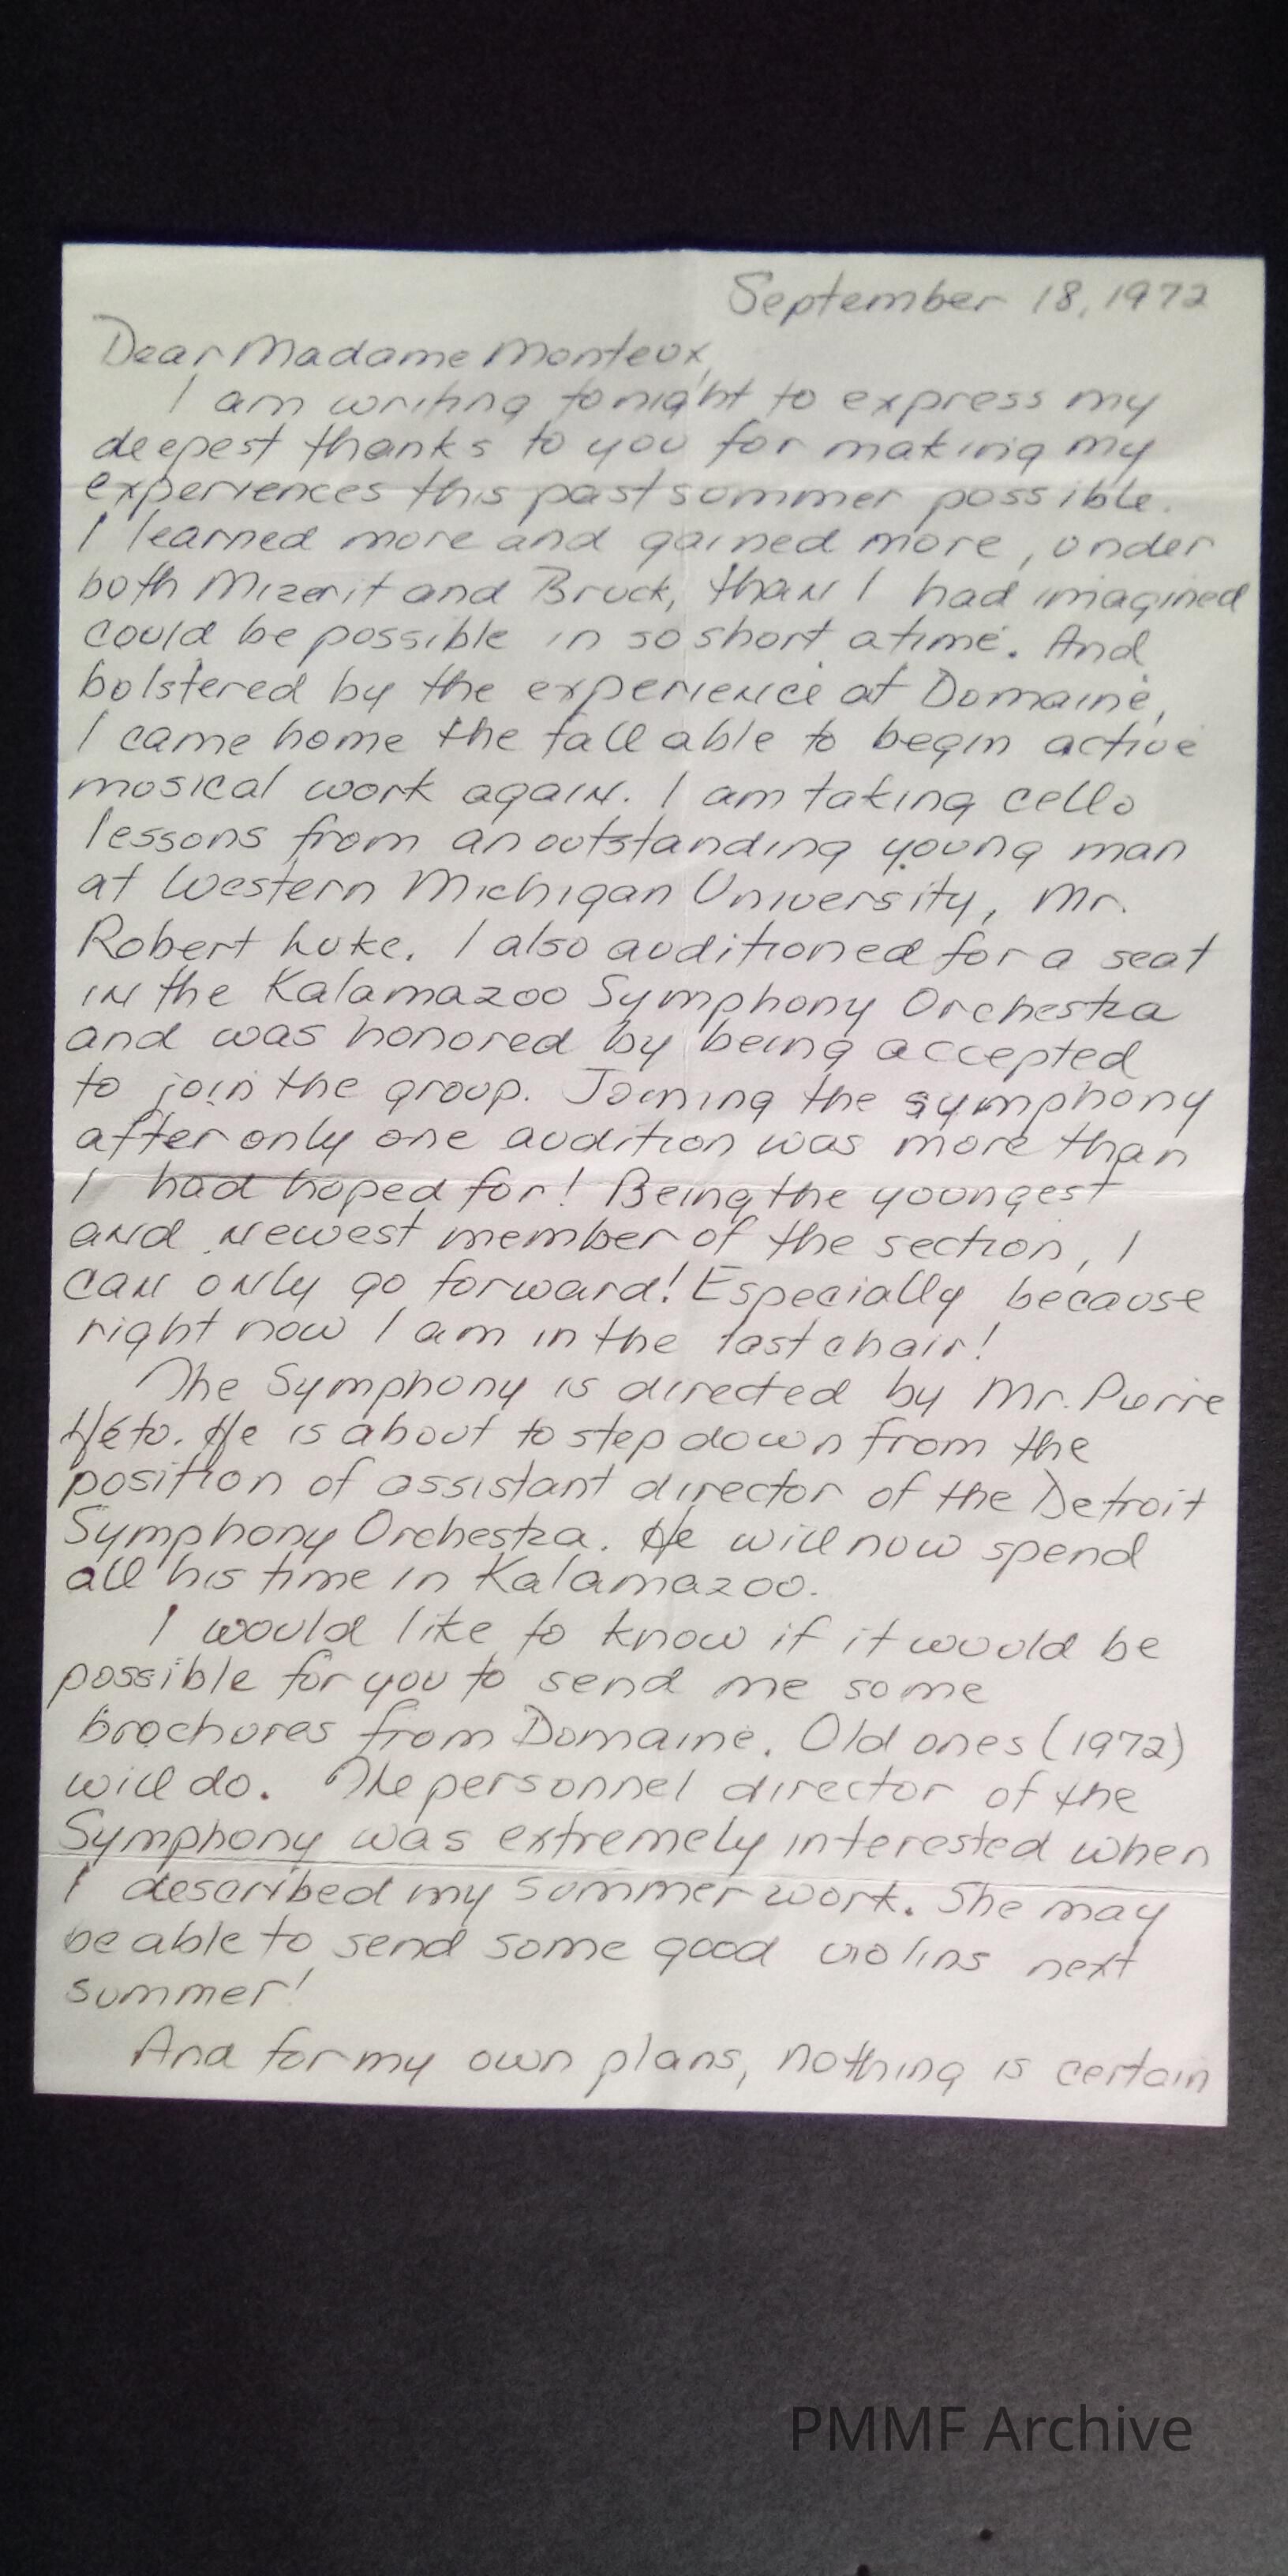 September 18, 1972
Dear Madame Monteux,
I am writing tonight to express my
deepest thanks to you for making my
experiences this past summer possible.
I learned more and gained more, under
both Mizerit and Bruck, than I had imagined
could be possible in so short a time. And
bolstered by the experience at Domaine,
I came home the fall able to begin active
musical work again. I am taking cello
lessons from an outstanding young man
at Western Michigan University, Mr.
Robert Luke. I also auditioned for a seat
in the Kalamazoo Symphony Orchestra
and was honored by being accepted
to join the group. Joining the symphony
after only one audition was more than
I had hoped for! Being the youngest
and newest member of the section, I
can only go forward! Especially because
right now I am in the last chair!
The Symphony is directed by Mr. Pierre
Héto. He is about to step down from the
position of assistant director of the Detroit
Symphony Orchestra. He will now spend
all his time in Kalamazoo.
I would like to know if it would be
possible for you to send me some
brochures from Domaine. Old ones (1972)
will do. The personnel director of the
Symphony was extremely interested when
I described my summer work. She may
be able to send some good violins next
summer!
And for my own plans, nothing is certain
PMMF Archive